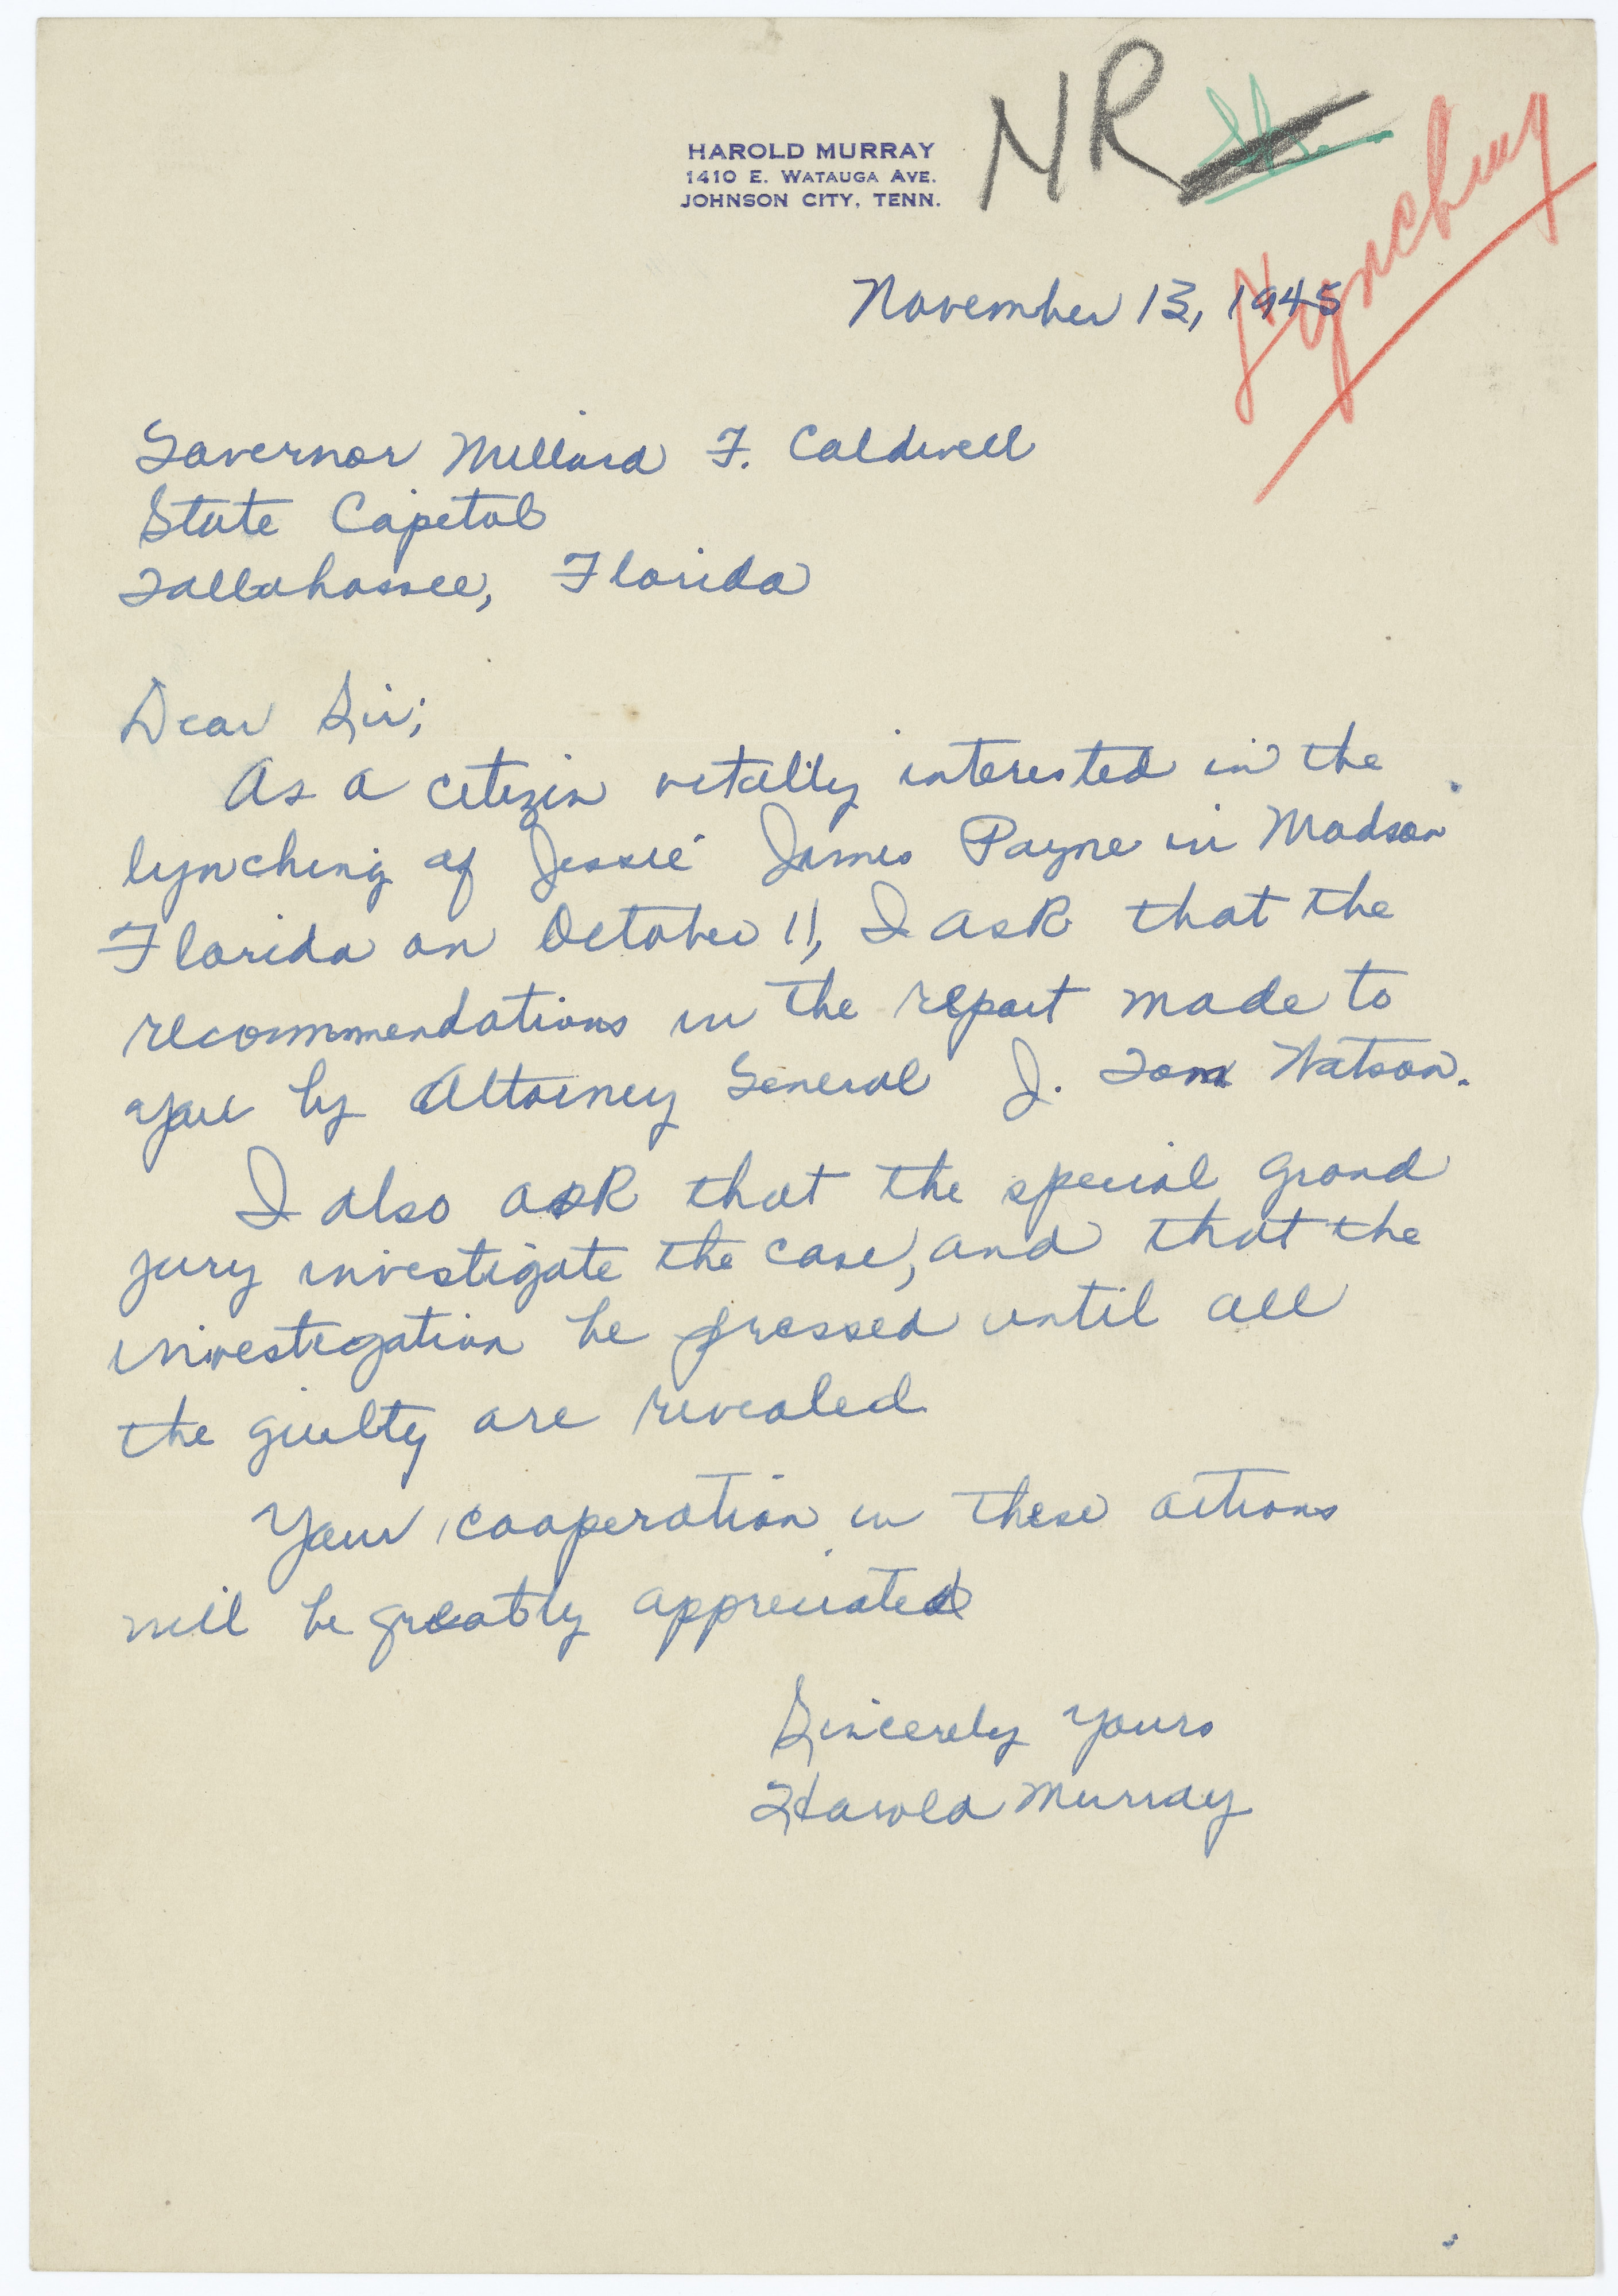 HAROLD MURRAY
1410 E. WATAUGA AVE.
JOHNSON CITY, TENN.
NR
Lynching
November 13, 1945
Governor Millard F. Caldwell
State Capitol
Tallahassee, Florida
Dear Sir;
As a citizen vitally interested in the
lynching of Jessie James Payne in Madson
Florida on October 11, I ask that the
recommendations in the report made to
you by Attorney General J. Tom Watson.
I also ask that the special grand
jury investigate the case, and that the
investigation be pressed until all
the guilty are revealed
Your cooperation in these actions
will be greatly appreciated
Sincerely yours
Harold Murray